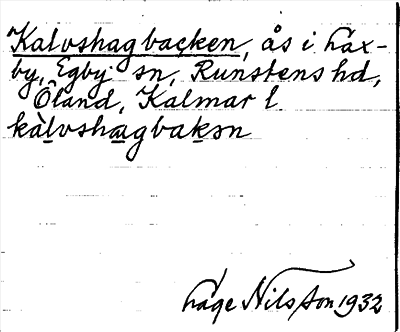 Kalvshagbacken, ås i Lax-
by, Egby sn, Runstens hd,
Öland, Kalmar l.
kàlvshagbakən
Låge Nilsson 1932